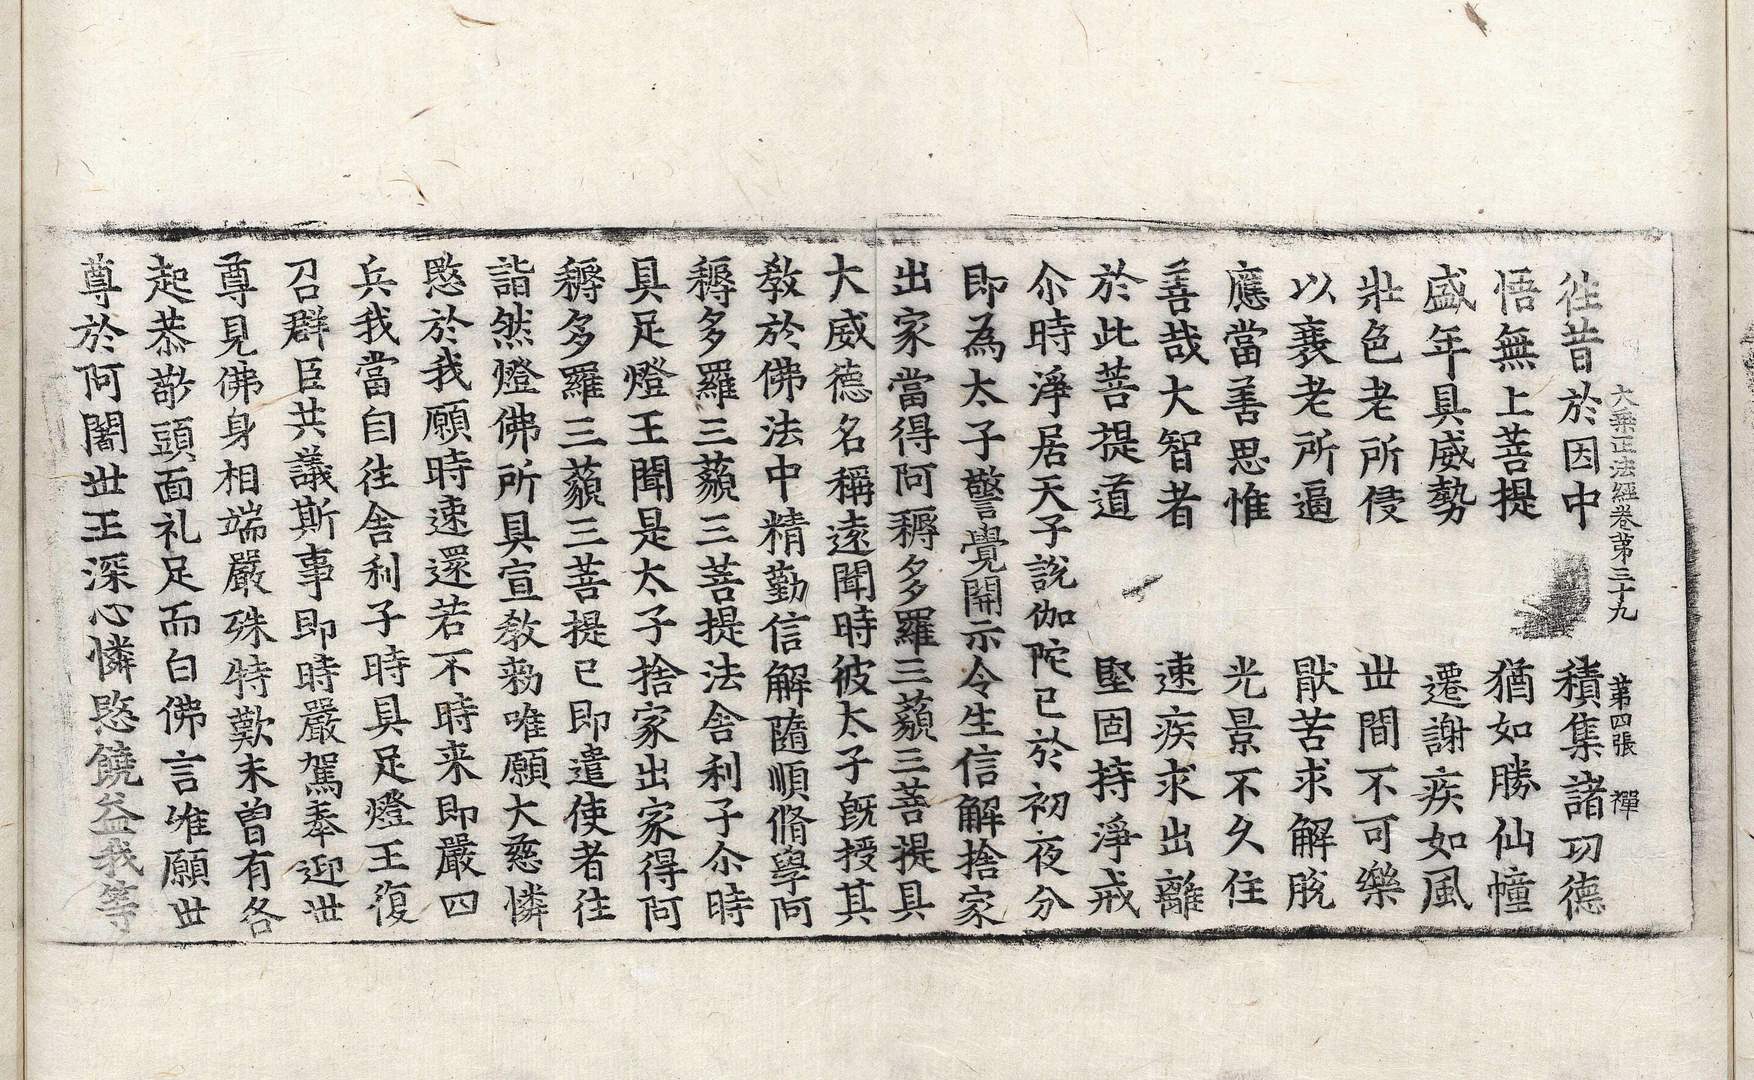 大乘正法經卷第三十九 第四張 禪
往昔於因中 積集諸功德
悟無上菩提 猶如勝仙幢
盛年具威勢 遷謝疾如風
壯色老所侵 世間不可樂
以衰老所逼 猒苦求解脫
應當善思惟 光景不久住
善哉大智者 速疾求出離
於此菩提道 堅固持淨戒
尒時淨居天子說伽陀已於初夜分
即為太子警覺開示令生信解捨家
出家當得阿耨多羅三藐三菩提具
大威德名稱遠聞時彼太子旣授其
教於佛法中精勤信解隨順脩學阿
耨多羅三藐三菩提法舍利子尒時
具足燈王聞是太子捨家出家得阿
耨多羅三藐三菩提已即遣使者往
詣然燈佛所具宣敎勑唯願大慈憐
愍於我願時速還若不時来即嚴四
兵我當自往舍利子時具足燈王復
召群臣共議斯事即時嚴駕奉迎世
尊見佛身相端嚴殊特歎未曾有各
起恭敬頭面礼足而白佛言唯願世
尊於阿闍世王深心憐愍饒益我等